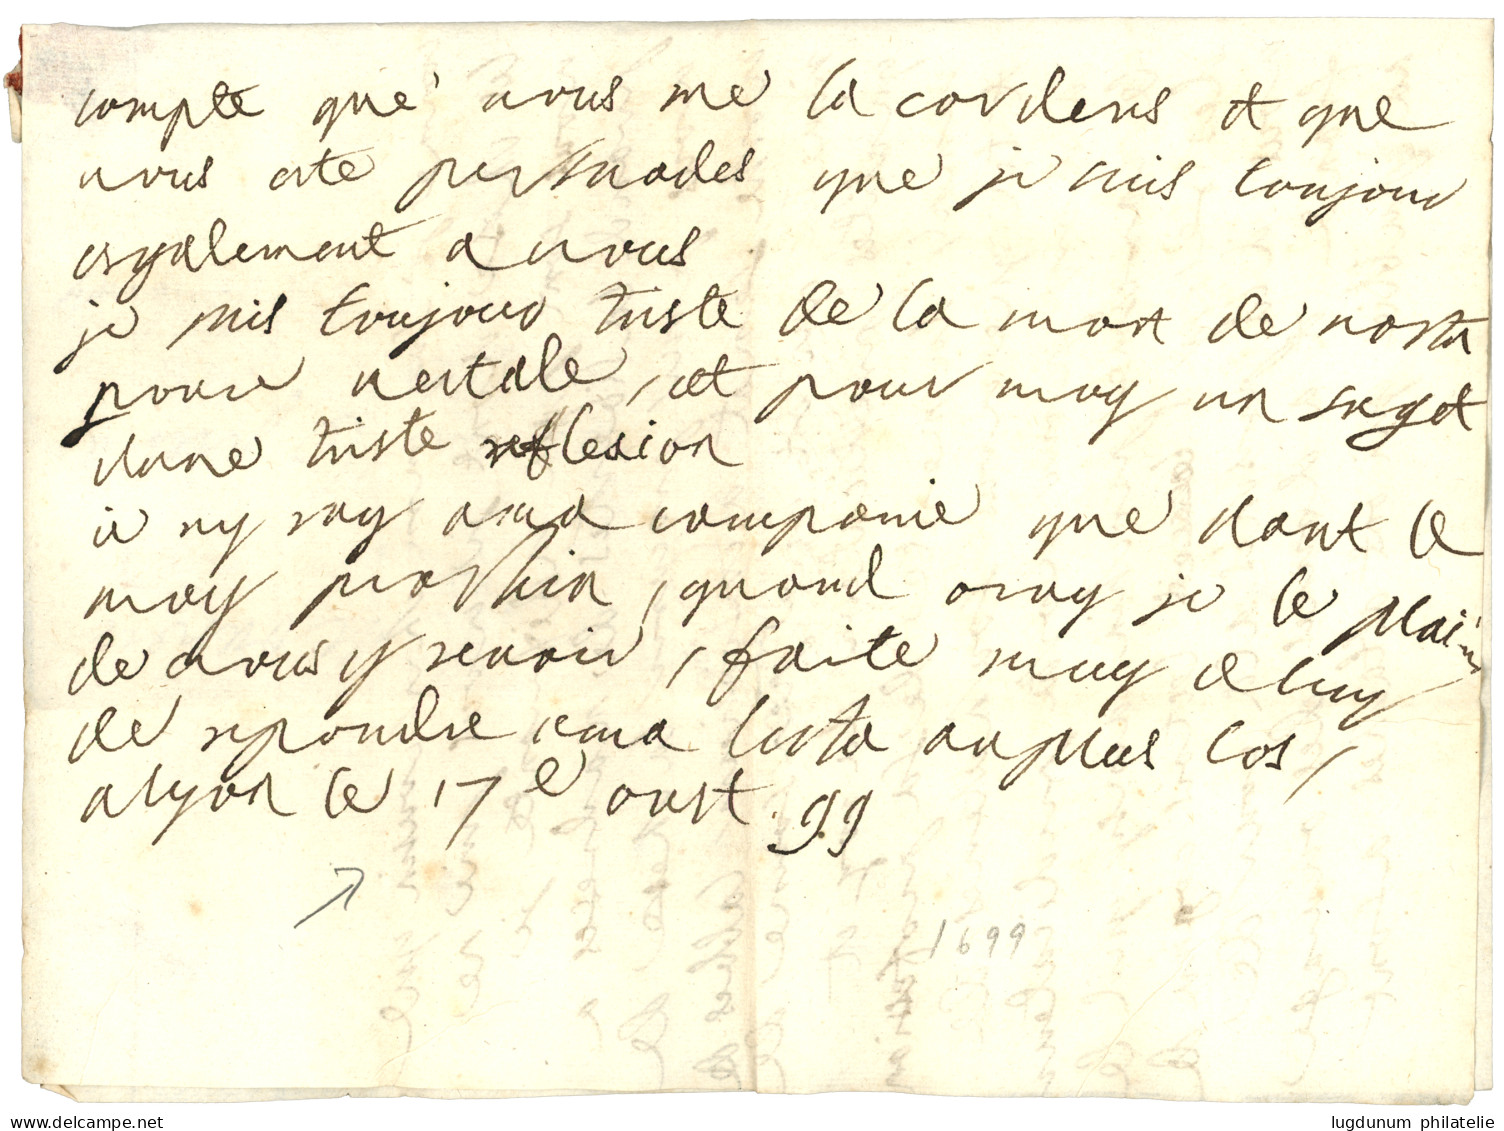 compte que vous me la corderes et que
vous este persuades que je suis toujour
esgalement a vous
je suis toujour triste de la mort de nostre
pouve vestale, cet pour moy un suget
dune triste reflesion
ie ny ray ama companie que dant le
moy prochin, quand oray je le plaisir
de vous y revoir, faite moy celuy
de repondre ama letta auplus tos,
alyon le 17e oust. 99
1699
delcampe.net
lugdunum philatelie